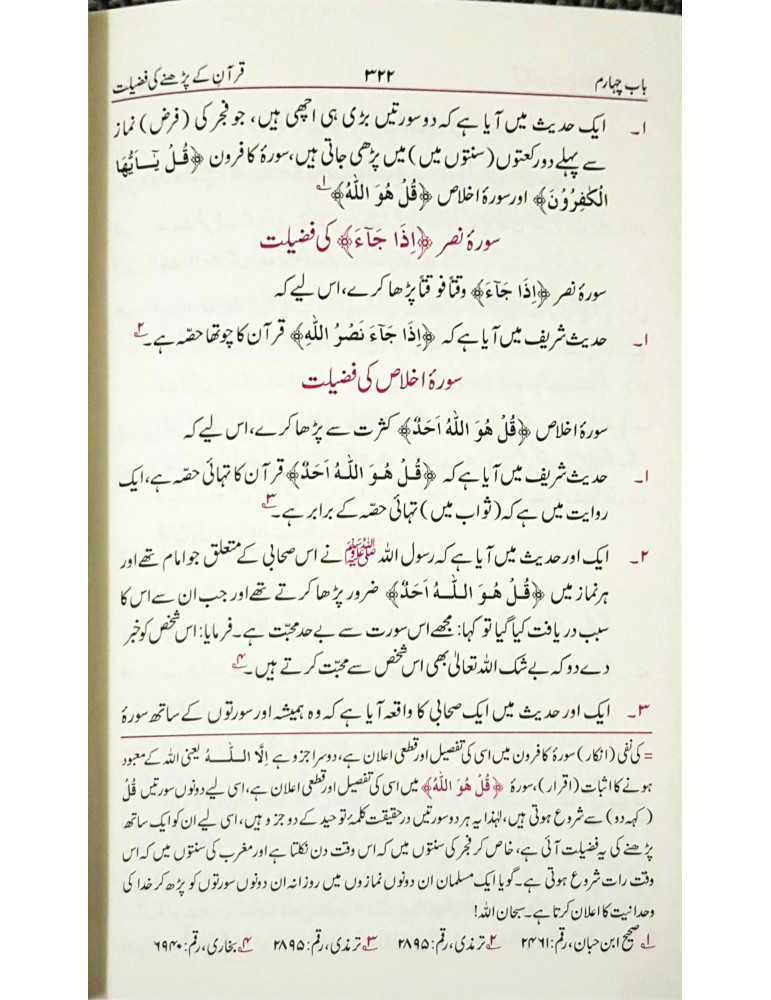 باب چہارم ۳۲۲ قرآن کے پڑھنے کی فضیلت
۱۔ ایک حدیث میں آیا ہے کہ دو سورتیں بڑی ہی اچھی ہیں، جو فجر کی (فرض) نماز
سے پہلے دو رکعتوں (سنتوں میں) میں پڑھی جاتی ہیں، سورۂ کافرون ﴿قُلْ يٰٓاَيُّهَا
الْكٰفِرُوْنَ﴾ اور سورۂ اخلاص ﴿قُلْ هُوَ اللّٰهُ﴾ ۱؎
سورۂ نصر ﴿اِذَا جَآءَ﴾ کی فضیلت
سورۂ نصر ﴿اِذَا جَآءَ﴾ وقتاً فوقتاً پڑھا کرے، اس لیے کہ
۱۔ حدیث شریف میں آیا ہے کہ ﴿اِذَا جَآءَ نَصْرُ اللّٰهِ﴾ قرآن کا چوتھا حصّہ ہے۔ ۲؎
سورۂ اخلاص کی فضیلت
سورۂ اخلاص ﴿قُلْ هُوَ اللّٰهُ اَحَدٌ﴾ کثرت سے پڑھا کرے، اس لیے کہ
۱۔ حدیث شریف میں آیا ہے کہ ﴿قُلْ هُوَ اللّٰهُ اَحَدٌ﴾ قرآن کا تہائی حصّہ ہے، ایک
روایت میں ہے کہ (ثواب میں) تہائی حصّہ کے برابر ہے۔ ۳؎
۲۔ ایک اور حدیث میں آیا ہے کہ رسول اللہ ﷺ نے اس صحابی کے متعلق جو امام تھے اور
ہر نماز میں ﴿قُلْ هُوَ اللّٰهُ اَحَدٌ﴾ ضرور پڑھا کرتے تھے اور جب ان سے اس کا
سبب دریافت کیا گیا تو کہا: مجھے اس سورت سے بے حد محبّت ہے۔ فرمایا: اس شخص کو خبر
دے دو کہ بے شک اللہ تعالیٰ بھی اس شخص سے محبّت کرتے ہیں۔ ۴؎
۳۔ ایک اور حدیث میں ایک صحابی کا واقعہ آیا ہے کہ وہ ہمیشہ اور سورتوں کے ساتھ سورۂ
= کی نفی (انکار) سورۂ کافرون میں اسی کی تفصیل اور قطعی اعلان ہے، دوسرا جزو ہے اِلَّا اللّٰهُ یعنی اللہ کے معبود
ہونے کا اثبات (اقرار)، سورۂ ﴿قُلْ هُوَ اللّٰهُ﴾ میں اسی کی تفصیل اور قطعی اعلان ہے، اسی لیے دونوں سورتیں قُلْ
(کہہ دو) سے شروع ہوتی ہیں، لہٰذا یہ ہر دو سورتیں درحقیقت کلمۂ توحید کے دو جزو ہیں، اسی لیے ان کو ایک ساتھ
پڑھنے کی یہ فضیلت آئی ہے، خاص کر فجر کی سنتوں میں کہ اس وقت دن نکلتا ہے اور مغرب کی سنتوں میں کہ اس
وقت رات شروع ہوتی ہے۔ گویا ایک مسلمان ان دونوں نمازوں میں روزانہ ان دونوں سورتوں کو پڑھ کر خدا کی
وحدانیت کا اعلان کرتا ہے۔ سبحان اللہ!
۱؎ صحیح ابن حبان، رقم: ۲۴۶۱ ۲؎ ترمذی، رقم: ۲۸۹۵ ۳؎ ترمذی، رقم: ۲۸۹۵ ۴؎ بخاری، رقم: ۶۹۴۰